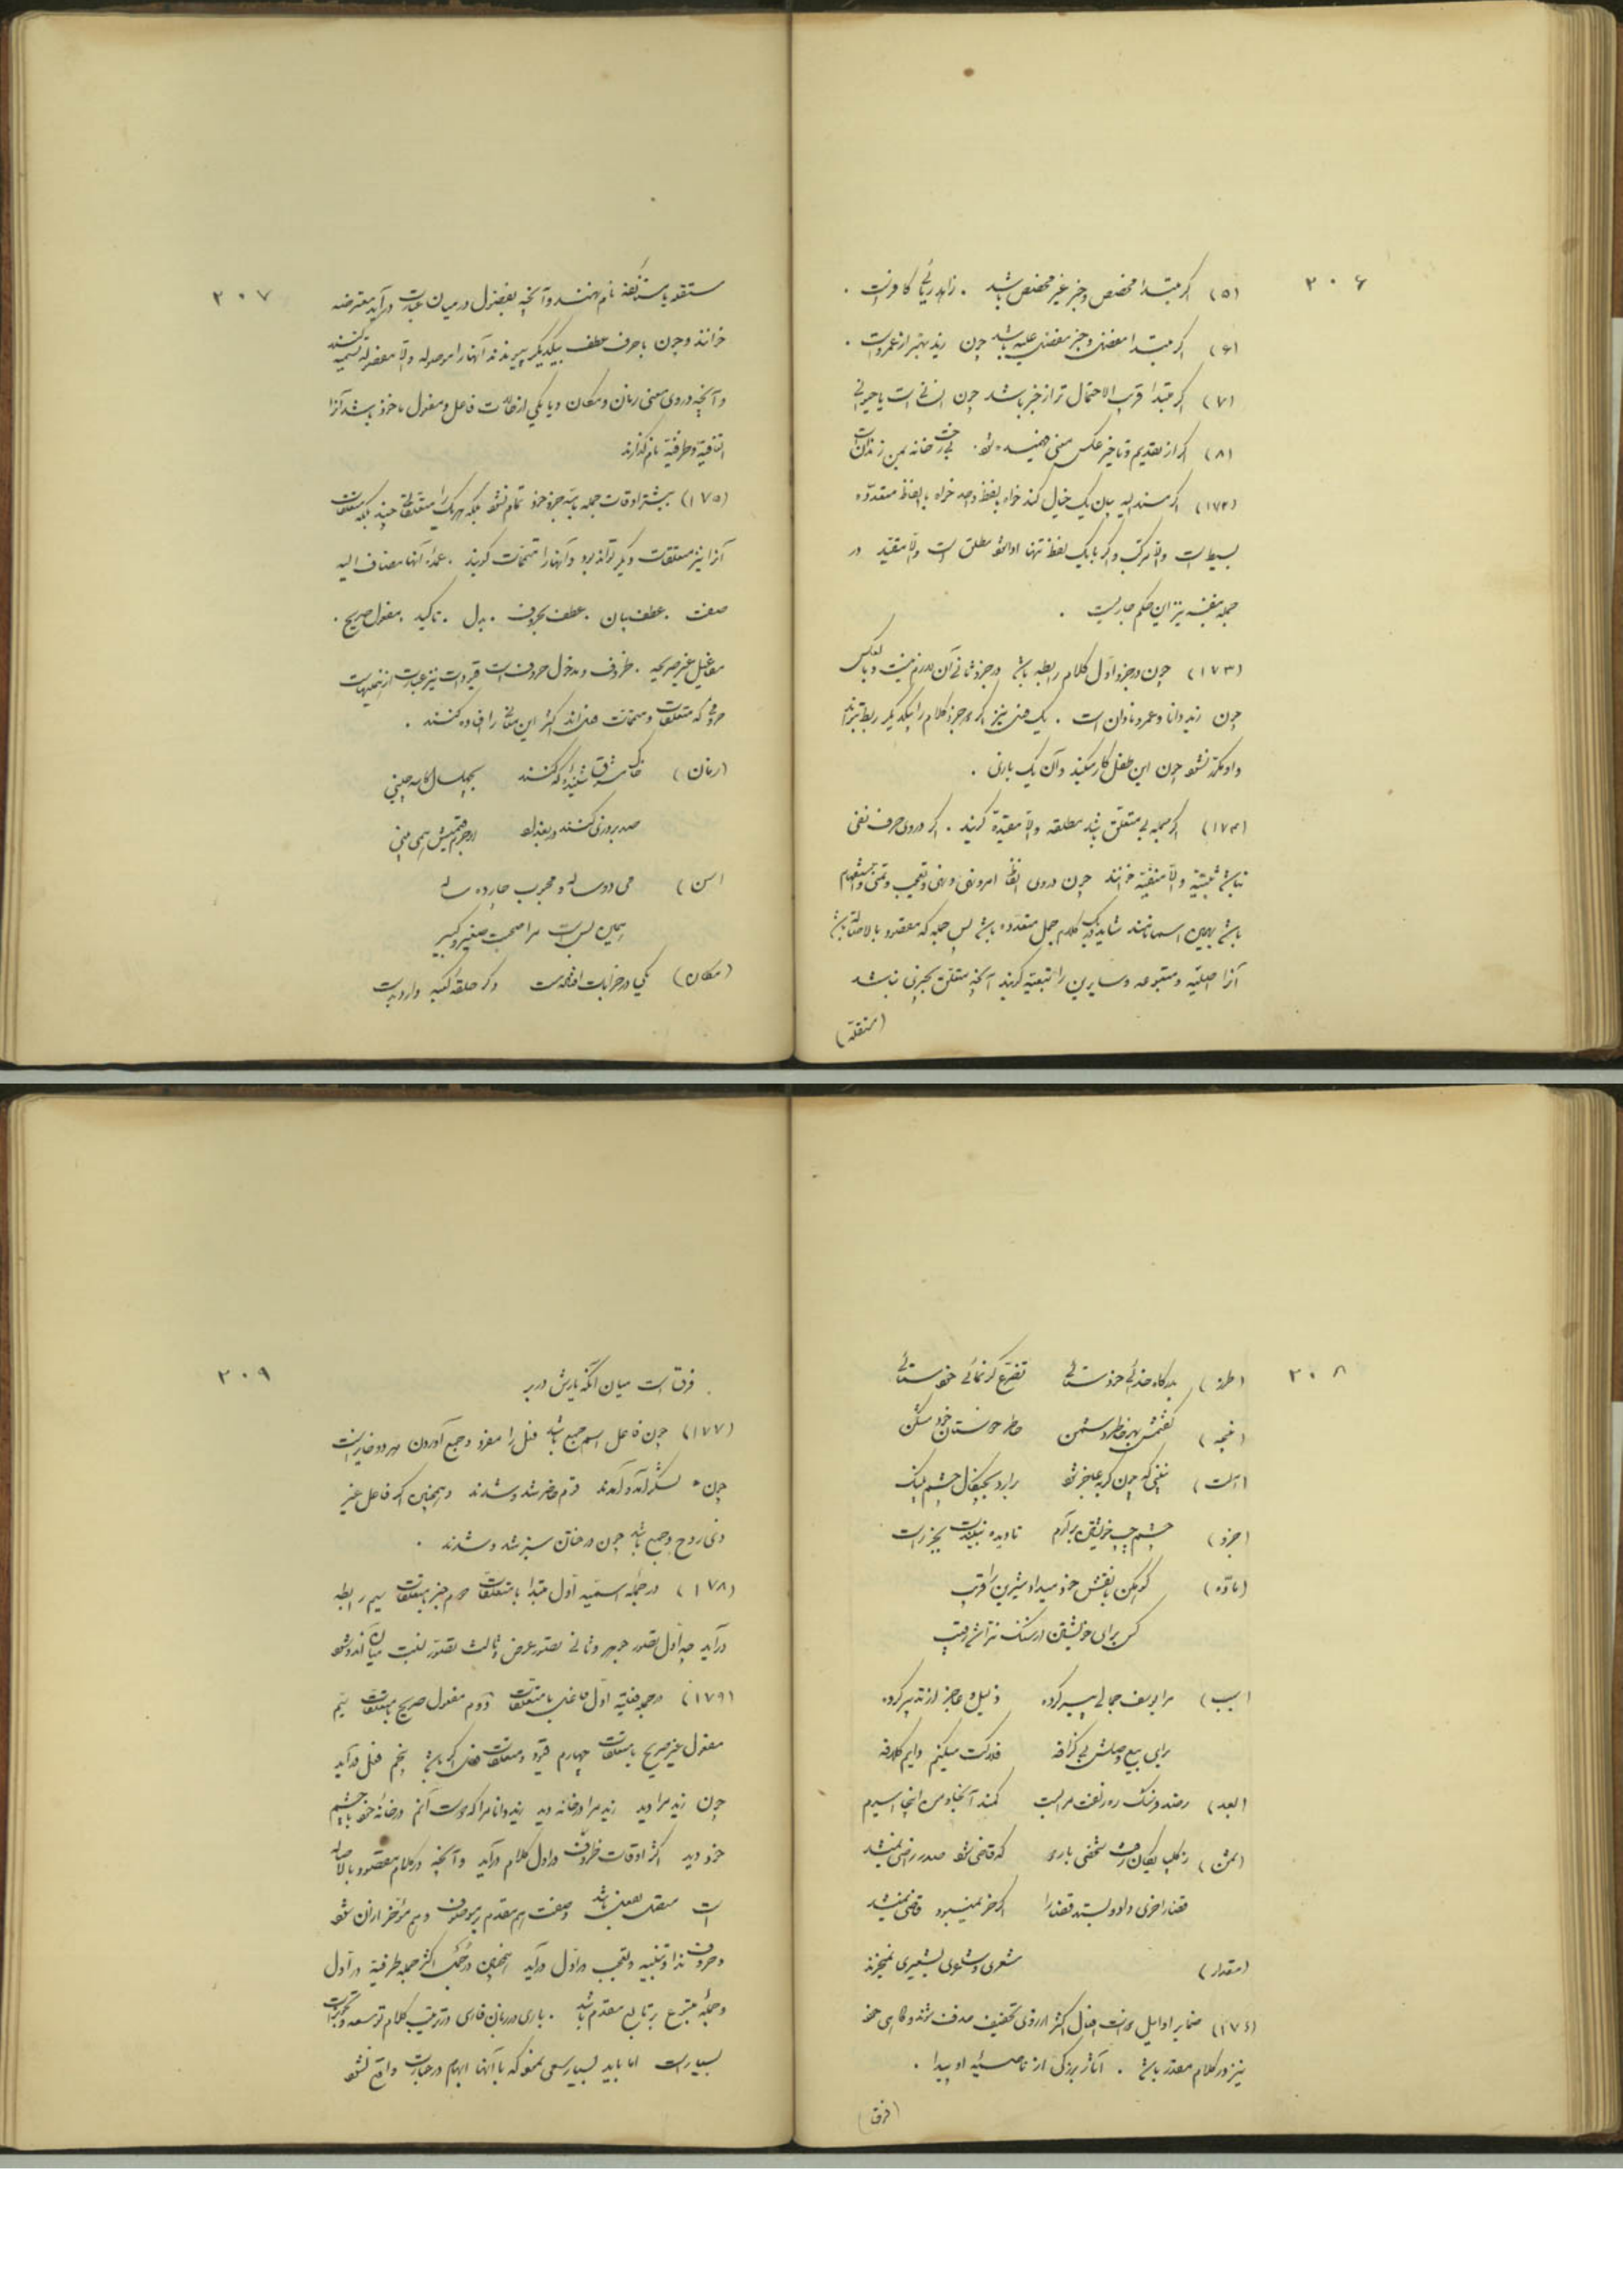 ۳۰۶
(۵) اگر مبتدا مخصص و خبر غیر مخصص باشد . زاهد ریائی کافر است .
(۶) اگر مبتدا مفضل و خبر مفضل علیه باشد چون زید بهتر از عمرو است .
(۷) اگر مبتدا قریب الاحتمال تر از خبر باشد چون انسانی است یا حیوانی
(۸) اگر از تقدیم و تاخیر عکس معنی فهمیده شود . بی رخت خانه بمن زندان است
(۱۷۲) اگر مسند الیه بیان یک خیال کند خواه بلفظ واحد خواه بالفاظ متعدّده
بسیط است والّا مرکب و اگر با یک لفظ تنها ادا شود مطلق است والّا مقیّد در
جمله نیز این حکم جاریست .
(۱۷۳) چون در جزو اوّل کلام رابطه باشد در جزو ثانی آن لازم نیست و بالعکس
چون زید دانا و عمرو نادان است . یک فعل نیز اگر دو جزو کلام را بیکدیگر ربط تواند
داد مکرّر نشود چون این طفل کار میکند و آن یک بازی .
(۱۷۴) اگر جمله بی متعلق باشد مطلقه والّا مقیّده گویند . اگر در وی حرف نفی
نباشد مثبته والّا منفیّه خوانند چون در وی الفاظ امر و نهی و تعجب و تمنی و استفهام
باشد بهمین اسما نامند شاید در یک کلام جمل متعدّده باشد پس جمله که مقصود بالاصاله باشد
آنرا اصلیّه و متبوعه و سایرین را تبعیّه گویند آنچه متعلق بچیزی نباشد
(مستقله)
۳۰۷
مستقله یا مستأنفه نام نهند و آنچه بفضول در میان عبارت در آید معترضه
خوانند و چون با حرف عطف بیکدیگر پیوندند آنها را موصوله والّا مفصوله تسمیه کنند
و آنچه در وی معنی زمان و مکان و یا یکی از حالات فاعل و مفعول ماخوذ باشد آنرا
و ظرفیّه نام گذارند
(۱۷۵) بیشتر اوقات جمله با سه جزو خود تمام نشود بلکه هر یک را متعلقاتی چند بلکه متعلقات
آنرا نیز متعلقات دیگر تواند بود و آنها را متممات گویند . عمدۀ آنها مضاف الیه
صفت . عطف بیان . عطف بحروف . بدل . تاکید . مفعول صریح .
مفاعیل غیر صریحه . ظروف و مدخول حروف است قیودات نیز عبارت از
حروفی که متعلقات و متممات فعل اند اکثر این معانی را افاده کنند .
(زمان) خاک مشرق شنیده‌ام که کنند بچهل سال کاسه چینی
صد بروزی کنند در بغداد لاجرم قیمتش همی بینی
(سن) می دو ساله و محبوب چارده ساله
همین بس است مرا صحبت صغیر و کبیر
(مکان) یکی در خرابات افتاده مست دگر حلقۀ کعبه دارد بدست
۳۰۸
(طرز) بدرگاه خدائی خود ستائی تضرّع گر نمائی خود ستائی
( ) گفتمش بهر خاطر دشمن خاطر دوستان خود مشکن
(آلت) نبینی که چون گربه عاجز شود برآرد بچنگال چشم پلنگ
(جزو) چشم چپ خویشتن برآرم تا دیده نبیندت بجز راست
(مادّه) کوهکن با نقش خود میداد شیرین را فریب
کس برای خویشتن از سنگ نتراشد رقیب
(سبب) مرا یوسف جمالی پیر کرده ذلیل و عاجز از تدبیر کرده
برای بیع وصلش بی گزافه فلاکت میکنم دایم کلافه
(بعد) رصد فرسنگ ره زلفت مرا بست کمند آنجا و من اینجا اسیرم
(ثمن) شخصی باری که قاضی شود صدر راضی نمیشد
قضا را خری داد و بستد قضا را اگر خر نمیبود قاضی نمیشد
(مقدار) شعری نمیخرند
(۱۷۶) ضمایر اوایل و افعال اکثر از روی تخفیف حذف شوند و گاهی خود
نیز در کلام مقدر باشد . آثار بزرگی از ناصیۀ او پیدا .
(فرق)
۳۰۹
فرق است میان آنکه یارش در بر
(۱۷۷) چون فاعل اسم جمع باشد فعل را مفرد و جمع آوردن هر دو جایز است
چون لشکر آمد و آمدند قوم حاضر شد و شدند و همچنین اگر فاعل غیر
ذی روح و جمع باشد چون درختان سبز شد و شدند .
(۱۷۸) در جملۀ اسمیّه اوّل مبتدا با متعلقات دوم خبر با متعلقات سیم رابطه
در آید چه اوّل تصور جوهر و ثانی تصور عرض و ثالث تصور نسبت میان آندو شود
(۱۷۹) در جملۀ فعلیّه اوّل فاعل با متعلقات دوّم مفعول صریح با متعلقات سیّم
مفعول غیر صریح با متعلقات چهارم قیود و متعلقات فعل اگر باشد پنجم فعل در آید
چون زید مرا دید زید مرا در خانه دید زید دانا مرا که دوست آنم در خانۀ خود با چشم
خود دید اکثر اوقات ظروف در اول کلام در آید و آنچه در کلام مقصود بالاصاله
است متصل بفعل باشد وصفت هم مقدم بر موصوف و هم مؤخر از آن شود
و حروف ندا و تنبیه و تعجب در اوّل در آید همچنین در اکثر جملۀ ظرفیّه در اوّل
و جملۀ متبوع بر تابع مقدم باشد . باری در زبان فارسی در ترتیب کلام توسعه و تجوزات
بسیار است اما باید بسیار سعی نمود که با آنها ابهام در عبارت واقع نشود